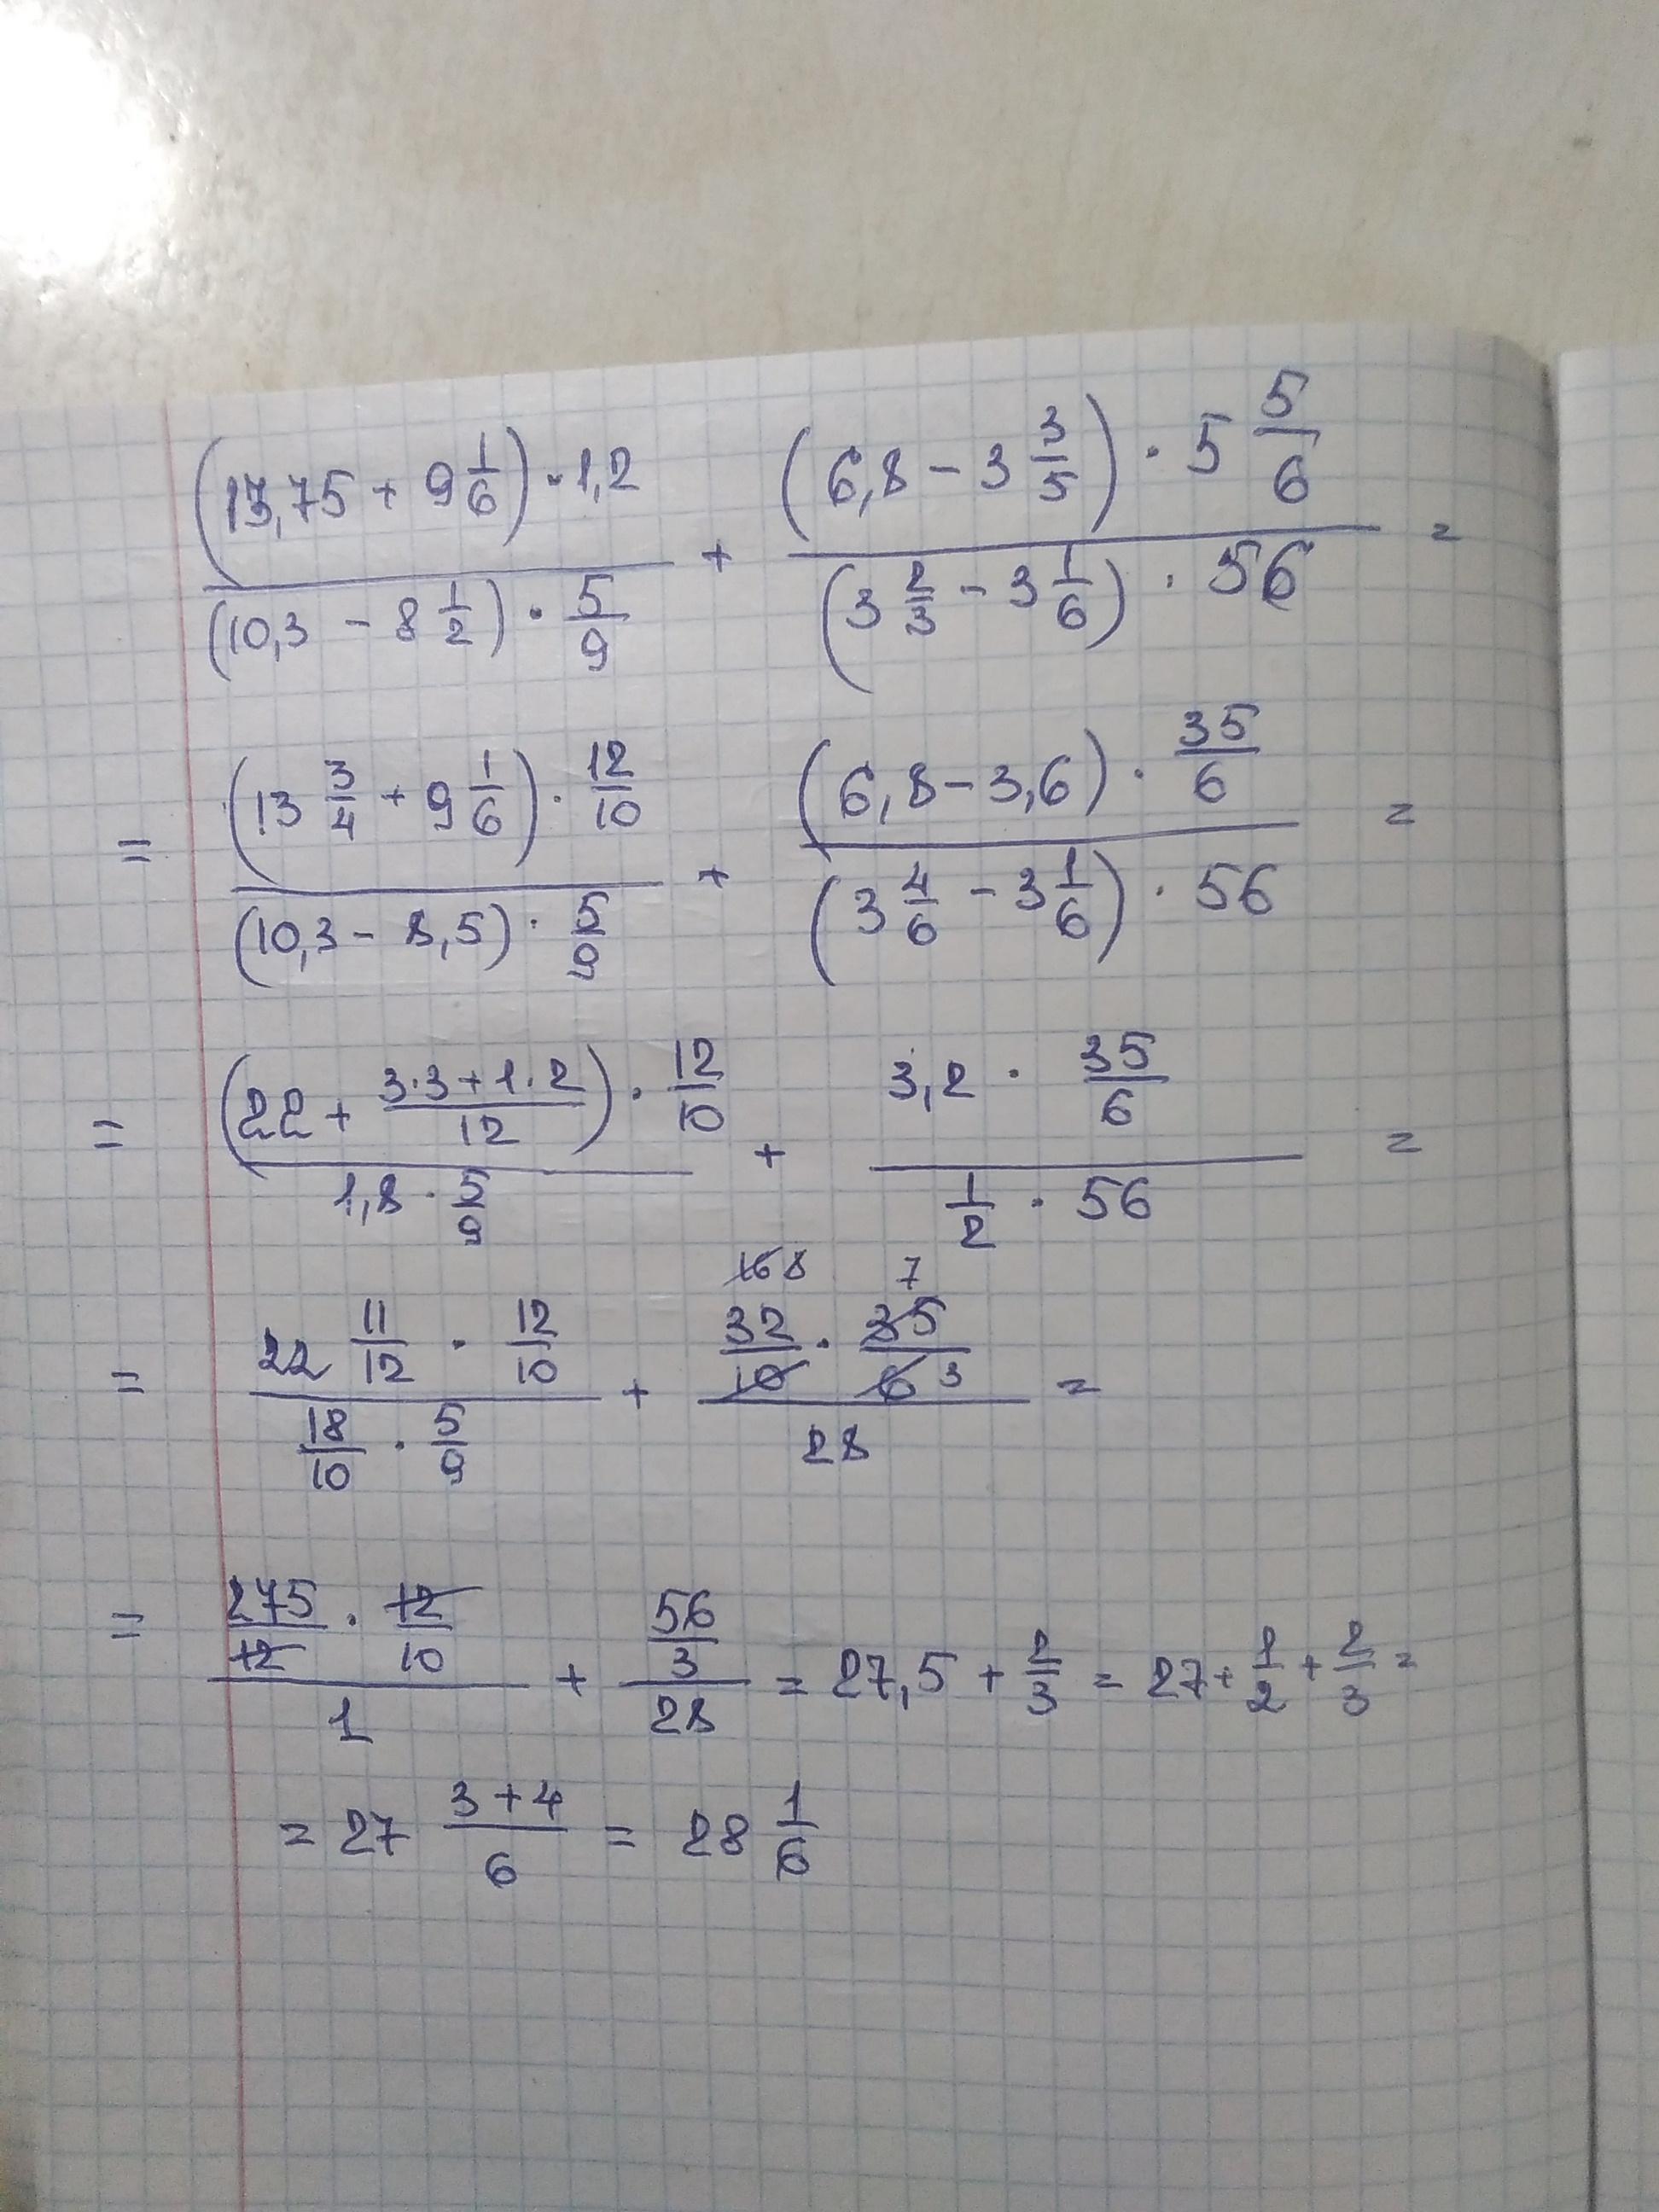 (13,75 + 9 1/6) · 1,2 / (10,3 - 8 1/2) · 5/9 + (6,8 - 3 3/5) · 5 5/6 / (3 2/3 - 3 1/6) · 56 =
= (13 3/4 + 9 1/6) · 12/10 / (10,3 - 8,5) · 5/9 + (6,8 - 3,6) · 35/6 / (3 4/6 - 3 1/6) · 56 =
= (22 + 3·3+1·2/12) · 12/10 / 1,8 · 5/9 + 3,2 · 35/6 / 1/2 · 56 =
16 8 7
= 22 11/12 · 12/10 / 18/10 · 5/9 + 32/10 · 35/6 3 / 28 =
= 275/12 · 12/10 / 1 + 56/3 / 28 = 27,5 + 2/3 = 27 + 1/2 + 2/3 =
= 27 3+4/6 = 28 1/6